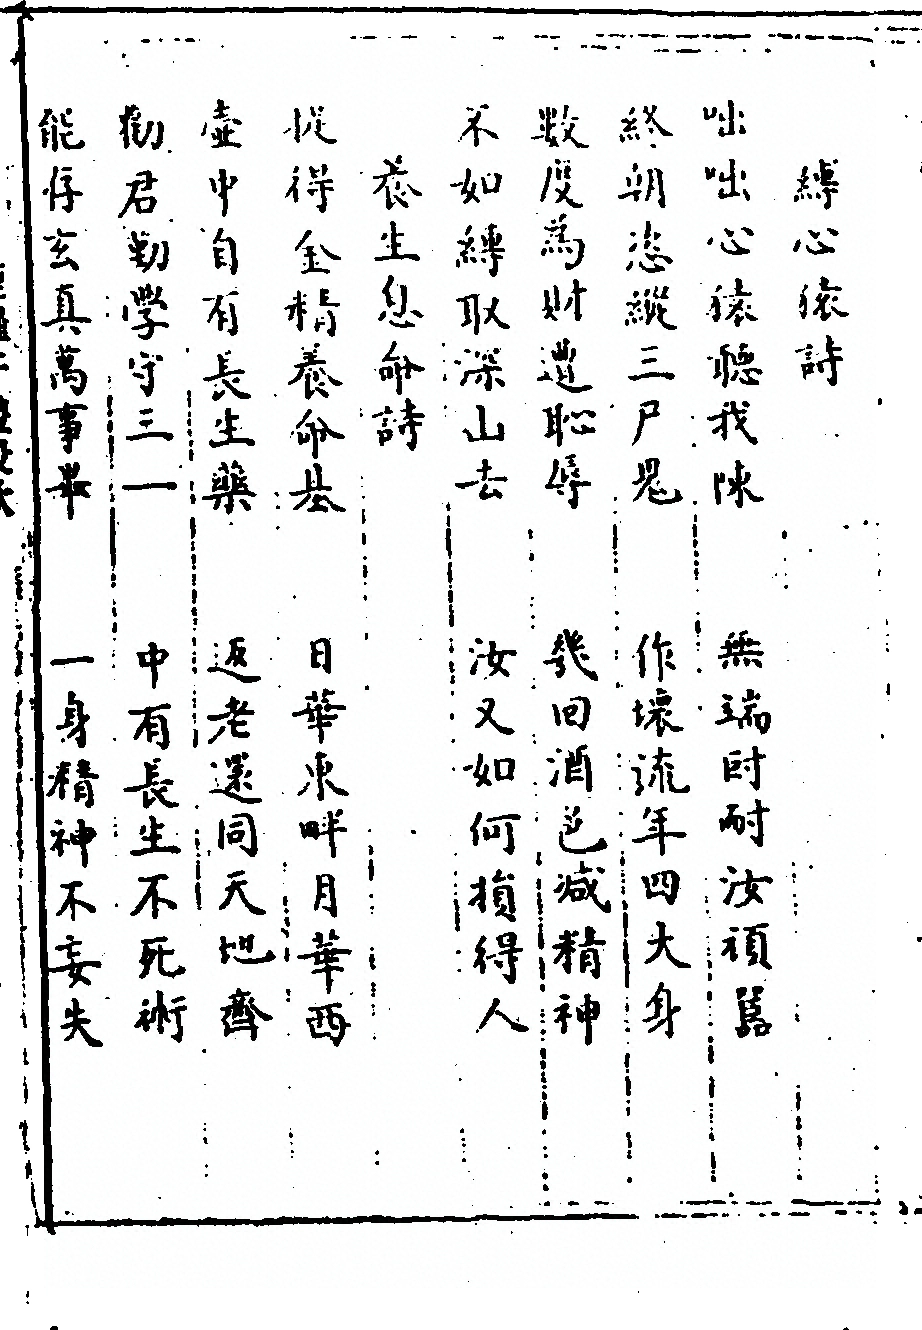 縛心猿詩
咄咄心猿聽我陳　無端時耐汝頑嚚
終朝恣縱三尸鬼　作壞流年四大身
數度為財遭恥辱　幾回酒色減精神
不如縛取深山去　汝又如何損得人
養生息命詩
從得金精養命基　日華東畔月華西
壺中自有長生藥　返老還同天地齊
勸君勤學守三一　中有長生不死術
能存玄真萬事畢　一身精神不妄失